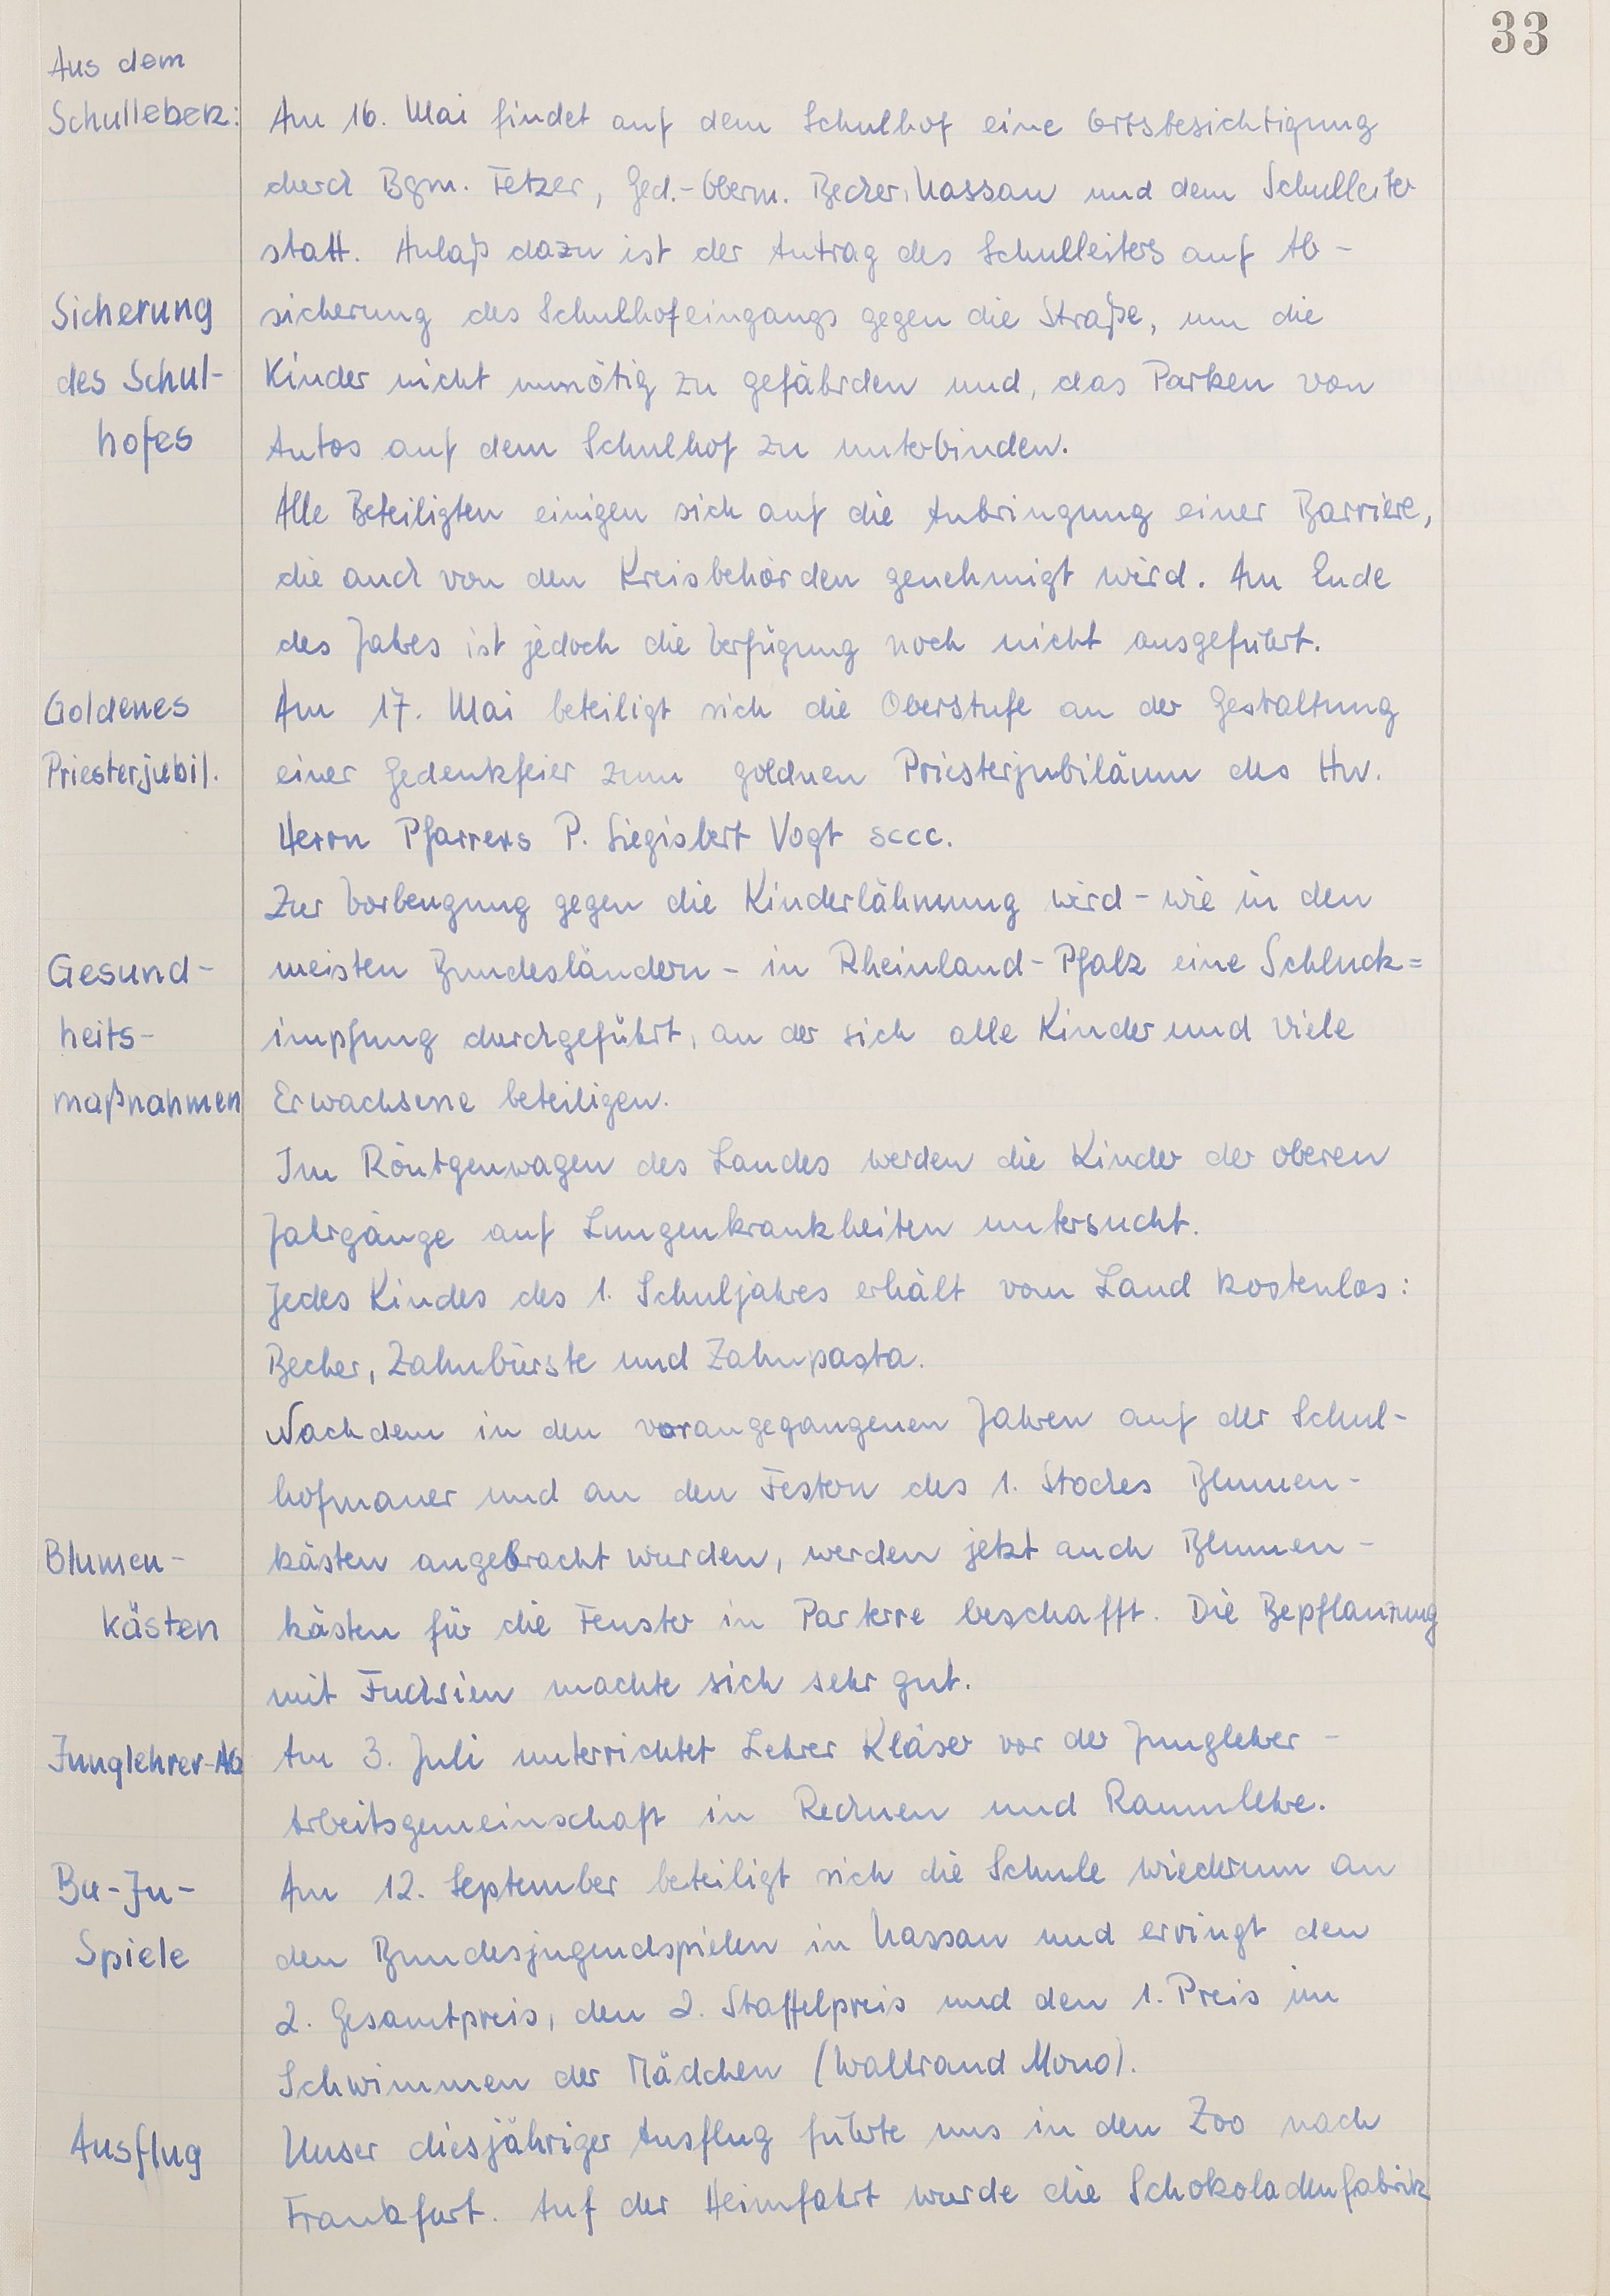 33
Aus dem
Schulleben:
Am 16. Mai findet auf dem Schulhof eine Ortsbesichtigung
durch Bgm. Fetzer, Ged.-Oberm. Becker, Nassau und dem Schulleiter
statt. Anlaß dazu ist der Antrag des Schulleiters auf Ab-
Sicherung
sicherung des Schulhofeingangs gegen die Straße, um die
des Schul-
Kinder nicht unnötig zu gefährden und, das Parken von
hofes
Autos auf dem Schulhof zu unterbinden.
Alle Beteiligten einigen sich auf die Anbringung einer Barriere,
die auch von den Kreisbehörden genehmigt wird. Am Ende
des Jahres ist jedoch die Verfügung noch nicht ausgeführt.
Goldenes
Am 17. Mai beteiligt sich die Oberstufe an der Gestaltung
Priesterjubil.
einer Gedenkfeier zum goldnen Priesterjubiläum des Hw.
Herrn Pfarrers P. Siegisbert Vogt sccc.
Zur Vorbeugung gegen die Kinderlähmung wird - wie in den
Gesund-
meisten Bundesländern - in Rheinland-Pfalz eine Schluck=
heits-
impfung durchgeführt, an der sich alle Kinder und viele
maßnahmen
Erwachsene beteiligen.
Im Röntgenwagen des Landes werden die Kinder der oberen
Jahrgänge auf Lungenkrankheiten untersucht.
Jedes Kindes des 1. Schuljahres erhält vom Land kostenlos:
Becher, Zahnbürste und Zahnpasta.
Nachdem in den vorangegangenen Jahren auf der Schul-
hofmauer und an den Festern des 1. Stockes Blumen-
Blumen-
kästen angebracht wurden, werden jetzt auch Blumen-
kästen
kästen für die Fenster in Parterre beschafft. Die Bepflanzung
mit Fuchsien machte sich sehr gut.
Junglehrer-AG
Am 3. Juli unterrichtet Lehrer Kläser vor der Junglehrer-
Arbeitsgemeinschaft in Rechnen und Raumlehre.
Bu-Ju-
Am 12. September beteiligt sich die Schule wiederum an
Spiele
den Bundesjugendspielen in Nassau und erringt den
2. Gesamtpreis, den 2. Staffelpreis und den 1. Preis im
Schwimmen der Mädchen (Waltraud Mono).
Ausflug
Unser diesjähriger Ausflug führte uns in den Zoo nach
Frankfurt. Auf der Heimfahrt wurde die Schokoladenfabrik